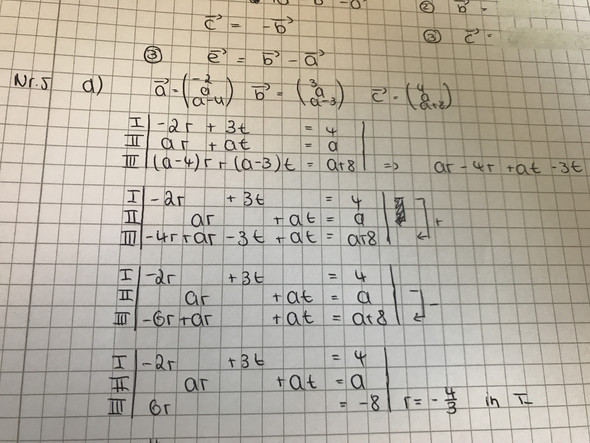 ② b⃗ =
c⃗ = -b⃗
③ c⃗ =
③ e⃗ = b⃗ - a⃗
Nr.5 a) a⃗ = (-2 a a-4) b⃗ = (3 a a-3) c⃗ = (4 a a+8)
I | -2r + 3t = 4 |
II | ar + at = a |
III | (a-4)r + (a-3)t = a+8 | => ar - 4r + at - 3t
I | -2r + 3t = 4 |
II | ar + at = a | +
III | -4r + ar - 3t + at = a+8 |
I | -2r + 3t = 4 |
II | ar + at = a | -
III | -6r + ar + at = a+8 |
I | -2r + 3t = 4 |
II | ar + at = a |
III | 6r = -8 | r = -4/3 in I